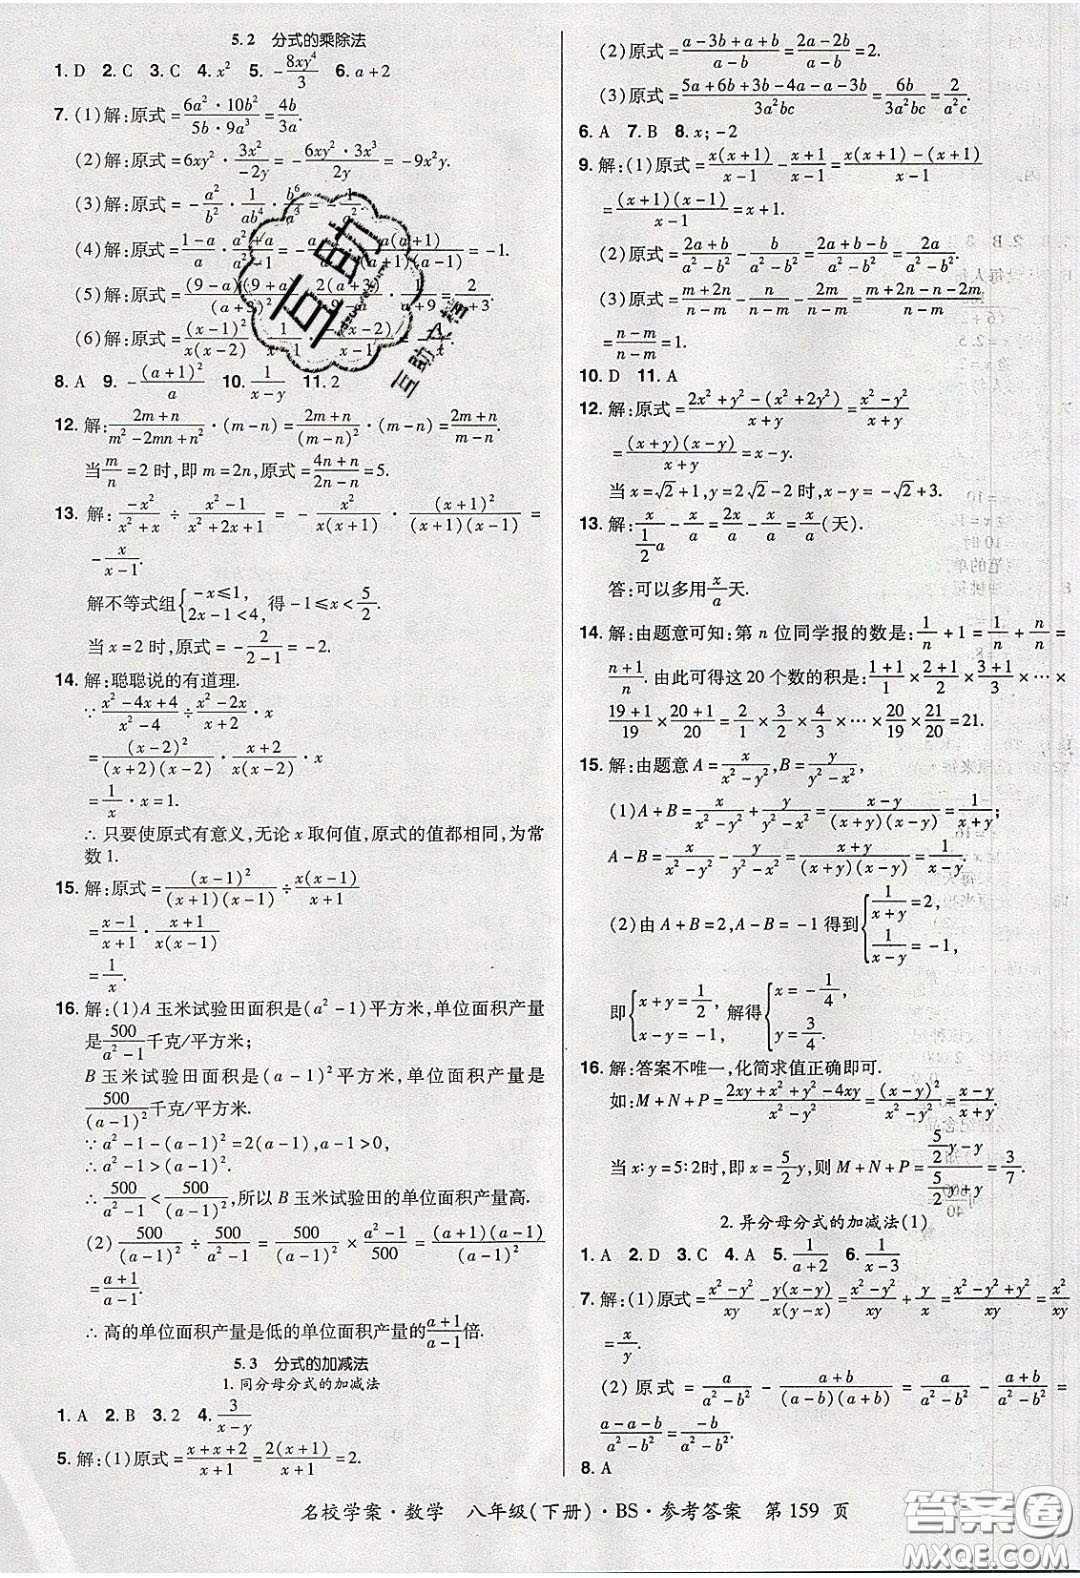 5.2 分式的乘除法
1. D 2. C 3. C 4. x² 5. -8xy⁴/3 6. a+2
7. (1)解:原式=6a²·10b²/5b·9a³=4b/3a.
(2)解:原式=6xy²·3x²/-2y=-6xy²·3x²/2y=-9x³y.
(3)解:原式=-a²/b²·1/ab⁴·b⁶
(4)解:原式=1-a/a·a²+a =-1.
(5)解:原式=(9-a)(9+a)
(6)解:原式=(x-1)²/x(x-2)·1/x-1
8. A 9. -(a+1)²/a 10. 1/x-y 11. 2
12. 解:2m+n/m²-2mn+n²·(m-n)=2m+n/(m-n)²·(m-n)=2m+n/m-n.
当m/n=2时,即m=2n,原式=4n+n/2n-n=5.
13. 解:-x²/x²+x÷x²-1/x²+2x+1=-x²/x(x+1)·(x+1)²/(x+1)(x-1)=
-x/x-1.
解不等式组{-x≤1, 2x-1<4, 得-1≤x<5/2.
当x=2时,原式=-2/2-1=-2.
14. 解:聪聪说的有道理.
∵x²-4x+4/x²-4÷x²-2x/x+2·x
=(x-2)²/(x+2)(x-2)·x+2/x(x-2)·x
=1/x·x=1.
∴只要使原式有意义,无论x取何值,原式的值都相同,为常
数1.
15. 解:原式=(x-1)²/(x+1)(x-1)÷x(x-1)/x+1
=x-1/x+1·x+1/x(x-1)
=1/x.
16. 解:(1)A玉米试验田面积是(a²-1)平方米,单位面积产量
是500/a²-1千克/平方米;
B玉米试验田面积是(a-1)²平方米,单位面积产量是
500/(a-1)²千克/平方米.
∵a²-1-(a-1)²=2(a-1),a-1>0,
∴a²-1>(a-1)².
∴500/a²-1<500/(a-1)²,所以B玉米试验田的单位面积产量高.
(2)500/(a-1)²÷500/a²-1=500/(a-1)²×a²-1/500=(a+1)(a-1)/(a-1)²
=a+1/a-1.
∴高的单位面积产量是低的单位面积产量的a+1/a-1倍.
5.3 分式的加减法
1. 同分母分式的加减法
1. A 2. B 3. 2 4. 3/x-y
5. 解:(1)原式=x+x+2/x+1=2(x+1)/x+1=2.
(2)原式=a-3b+a+b/a-b=2a-2b/a-b=2.
(3)原式=5a+6b+3b-4-a-3b/3a²bc=6b/3a²bc=2/a²c.
6. A 7. B 8. x;-2
9. 解:(1)原式=x(x+1)/x-1-x+1/x-1=x(x+1)-(x+1)/x-1
=(x+1)(x-1)/x-1=x+1.
(2)原式=2a+b/a²-b²-b/a²-b²=2a+b-b/a²-b²=2a/a²-b².
(3)原式=m+2n/n-m+n/n-m-2m/n-m=m+2n+n-2m/n-m=
n-m/n-m=1.
10. D 11. A
12. 解:原式=2x²+y²-(x²+2y²)/x+y=x²-y²/x+y
=(x+y)(x-y)/x+y=x-y.
当x=√2+1,y=2√2-2时,x-y=-√2+3.
13. 解:x/½a-x/a=2x/a-x/a=x/a(天).
答:可以多用x/a天.
14. 解:由题意可知:第n位同学报的数是:1/n+1=1/n+n/n=
n+1/n.由此可得这20个数的积是:1+1/1×2+1/2×3+1/3×…×
19+1/19×20+1/20=2/1×3/2×4/3×…×20/19×21/20=21.
15. 解:由题意A=x/x²-y²,B=y/x²-y²,
(1)A+B=x/x²-y²+y/x²-y²=x+y/(x+y)(x-y)=1/x-y;
A-B=x/x²-y²-y/x²-y²=x-y/(x+y)(x-y)=1/x+y.
(2)由A+B=2,A-B=-1得到{1/x+y=2, 1/x-y=-1,
即{x+y=1/2, x-y=-1, 解得{x=-1/4, y=3/4.
16. 解:答案不唯一,化简求值正确即可.
如:M+N+P=2xy+x²+y²-4xy/x²-y²=(x-y)²/x²-y²=x-y/x+y.
当x:y=5:2时,即x=5/2y,则M+N+P=5/2y-y/5/2y+y=3/7.
2. 异分母分式的加减法(1)
1. A 2. D 3. C 4. A 5. 1/a+2 6. 1/x-3
7. 解:(1)原式=x²-y²/xy-y(x-y)/x(y-x)=x²-y²/xy+y/x=x²-y²+y²/xy=x²/xy=
x/y.
(2)原式=a/a²-b²-a+b/(a-b)(a+b)=a/a²-b²-a+b/a²-b²=
a-a-b/a²-b²=-b/a²-b².
8. A
名校学案·数学 八年级(下册)·BS·参考答案 第159页
互助
互助文档
答案圈
MXQE.COM